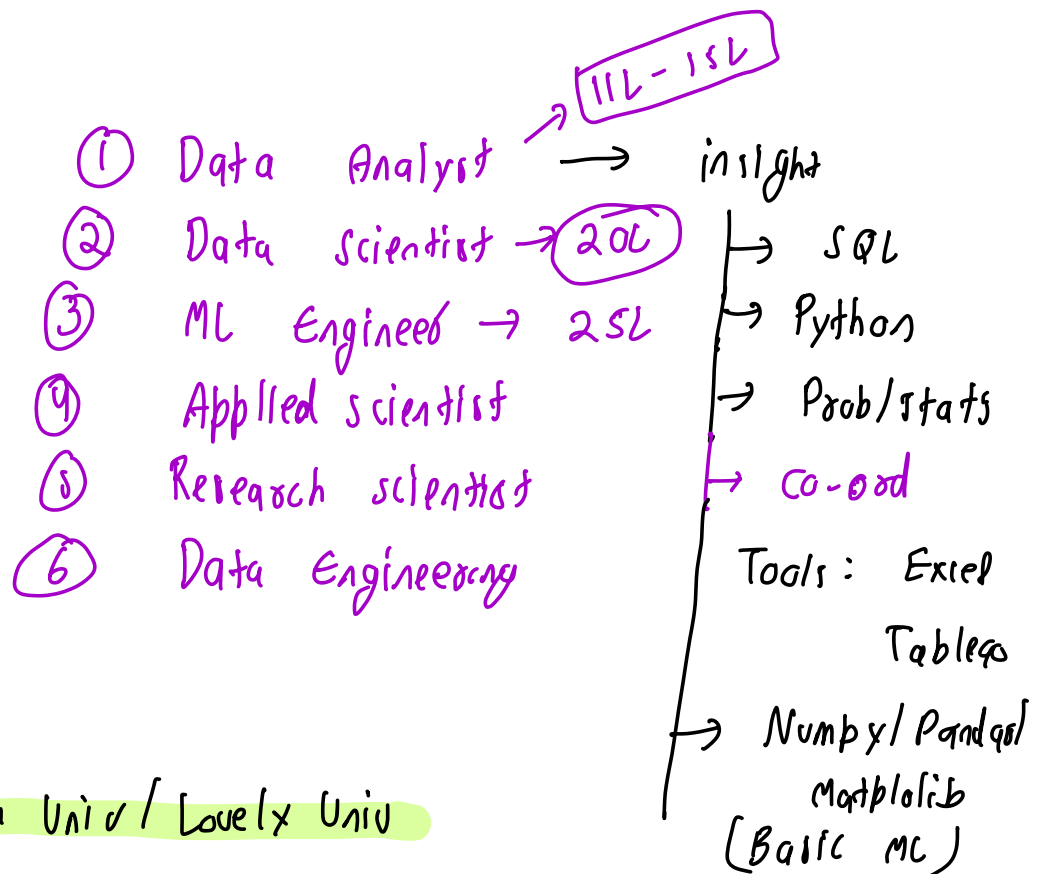 11L - 15L
① Data Analyst → insight
② Data scientist → 20L
③ ML Engineer → 25L
④ Applied scientist
⑤ Research scientist
⑥ Data Engineering
→ SQL
→ Python
→ Prob/stats
→ co-ord
Tools : Excel
Tableau
→ Numpy/Pandas/
Matplolib
(Basic ML)
Univ / Lovely Univ